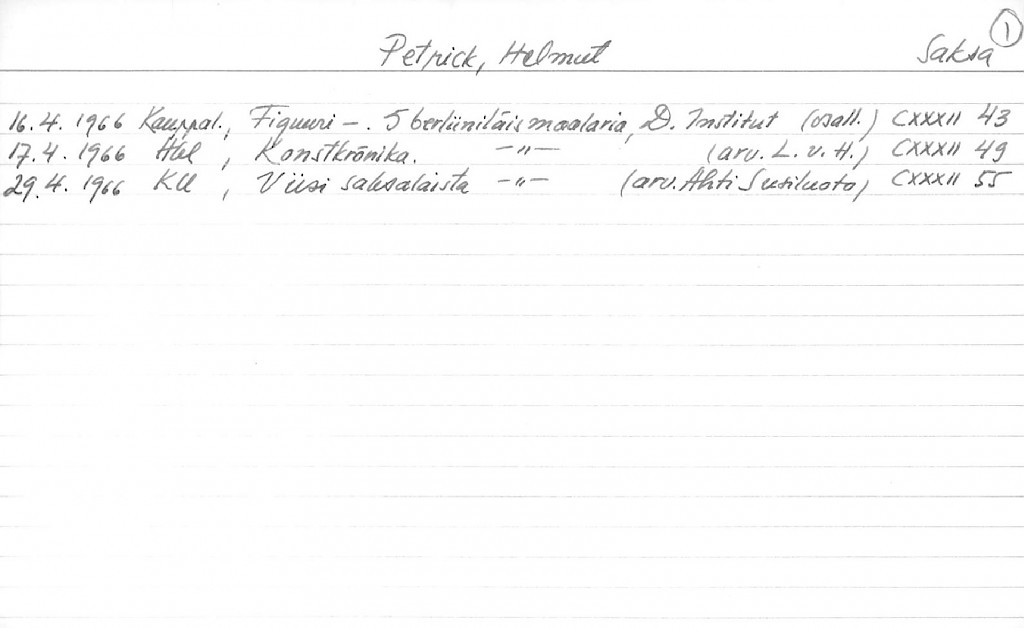 1
Petrick, Helmut Saksa
16.4.1966 Kauppal., Figuuri -. 5 berliiniläismaalaria, D. Institut (osall.) CXXXII 43
17.4.1966 Hbl, Konstkrönika. -"- (arv. L. v. H.) CXXXII 49
29.4.1966 KU, Viisi saksalaista -"- (arv. Ahti Susiluoto) CXXXII 55